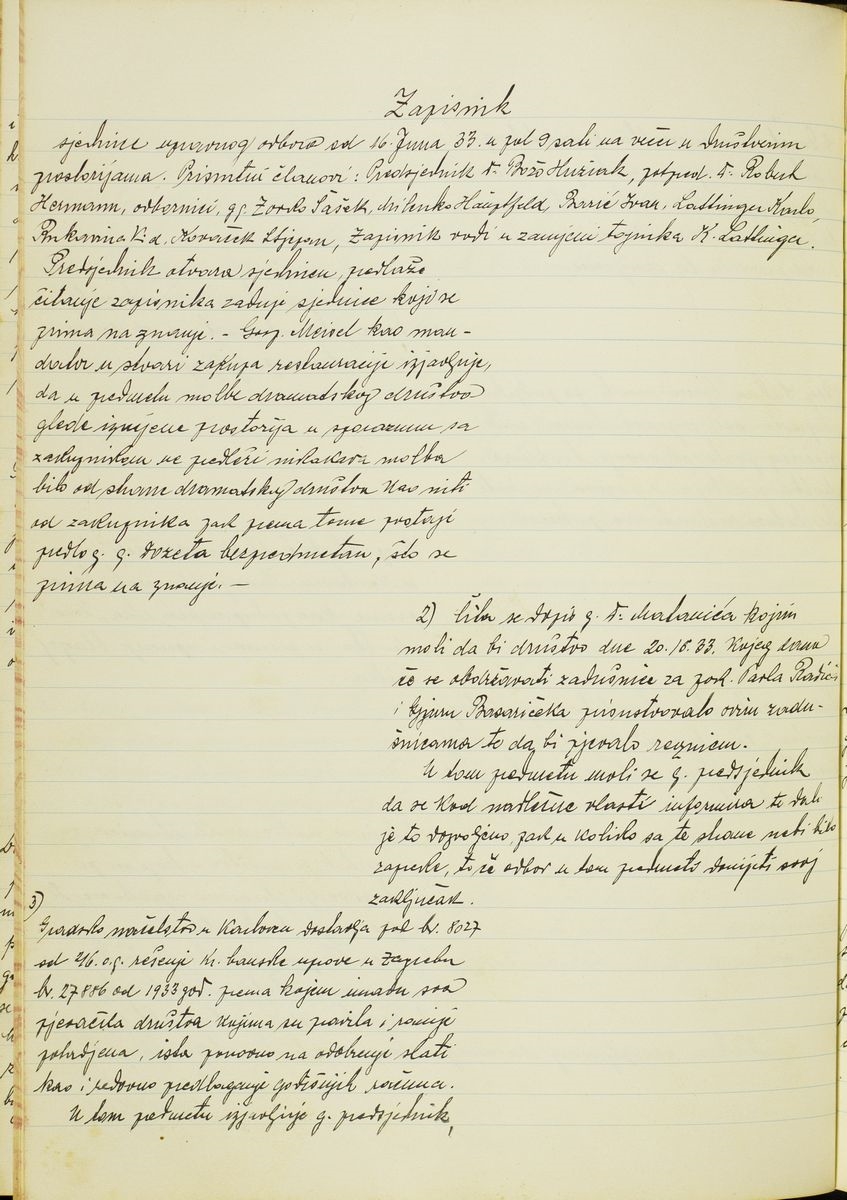 Zapisnik
sjednice upravnog odbora od 16. Juna 33. u pol 9 sati na veče u društvenim
prostorijama. Prisutni članovi: Predsjednik dr. Božo Hužvak, potpred. dr. Robert
Hermann, odbornici, gg. Zvonko Šašek, Milenko Hauptfeld, Barić Ivan, Lattinger Karlo,
Rukavina V. d. Kovaček Stjepan, Zapisnik vodi u zamjeni tajnika K. Lattinger.
Predsjednik otvara sjednicu, predlaže
čitanje zapisnika zadnje sjednice koji se
prima na znanje. - Gosp. Meisel kao man-
datar u stvari zakupa restauracije izjavljuje,
da u predmetu molbe dramatskog društva
glede izmjene prostorija u sporazumu sa
zakupnikom ne predleži nikakova molba
bilo od strane dramatskog društva kao niti
od zakupnika pak prema tome postaje
predlog g. Dozeta bezpredmetan, što se
prima na znanje. -
2) Čita se dopis g. dr. Matanića kojim
moli da bi društvo dne 20./6. 33. kojeg dana
će se obdržavati zadušnice za pok. Pavla Radića
i Gjuru Basaričeka prisustvovalo ovim zadu-
šnicama te da bi pjevalo requiem.
U tom predmetu moli se g. predsjednik
da se kod nadležne vlasti informira te dali
je to dozvoljeno pak u koliko sa te strane nebi bilo
zapreke, to će odbor u tom predmetu donijeti svoj
zaključak.
3)
Gradsko načelstvo u Karlovcu dostavlja pod br. 8027
od 2/6. o.g. rešenje Kr. banske uprave u Zagrebu
br. 27886 od 1933 god. prema kojem imadu sva
pjevačka društva kojima su pravila i ranije
potvrdjena, ista ponovno na odobrenje slati
kao i redovno predlaganje godišnjih računa.
U tom predmetu izjavljuje g. predsjednik,